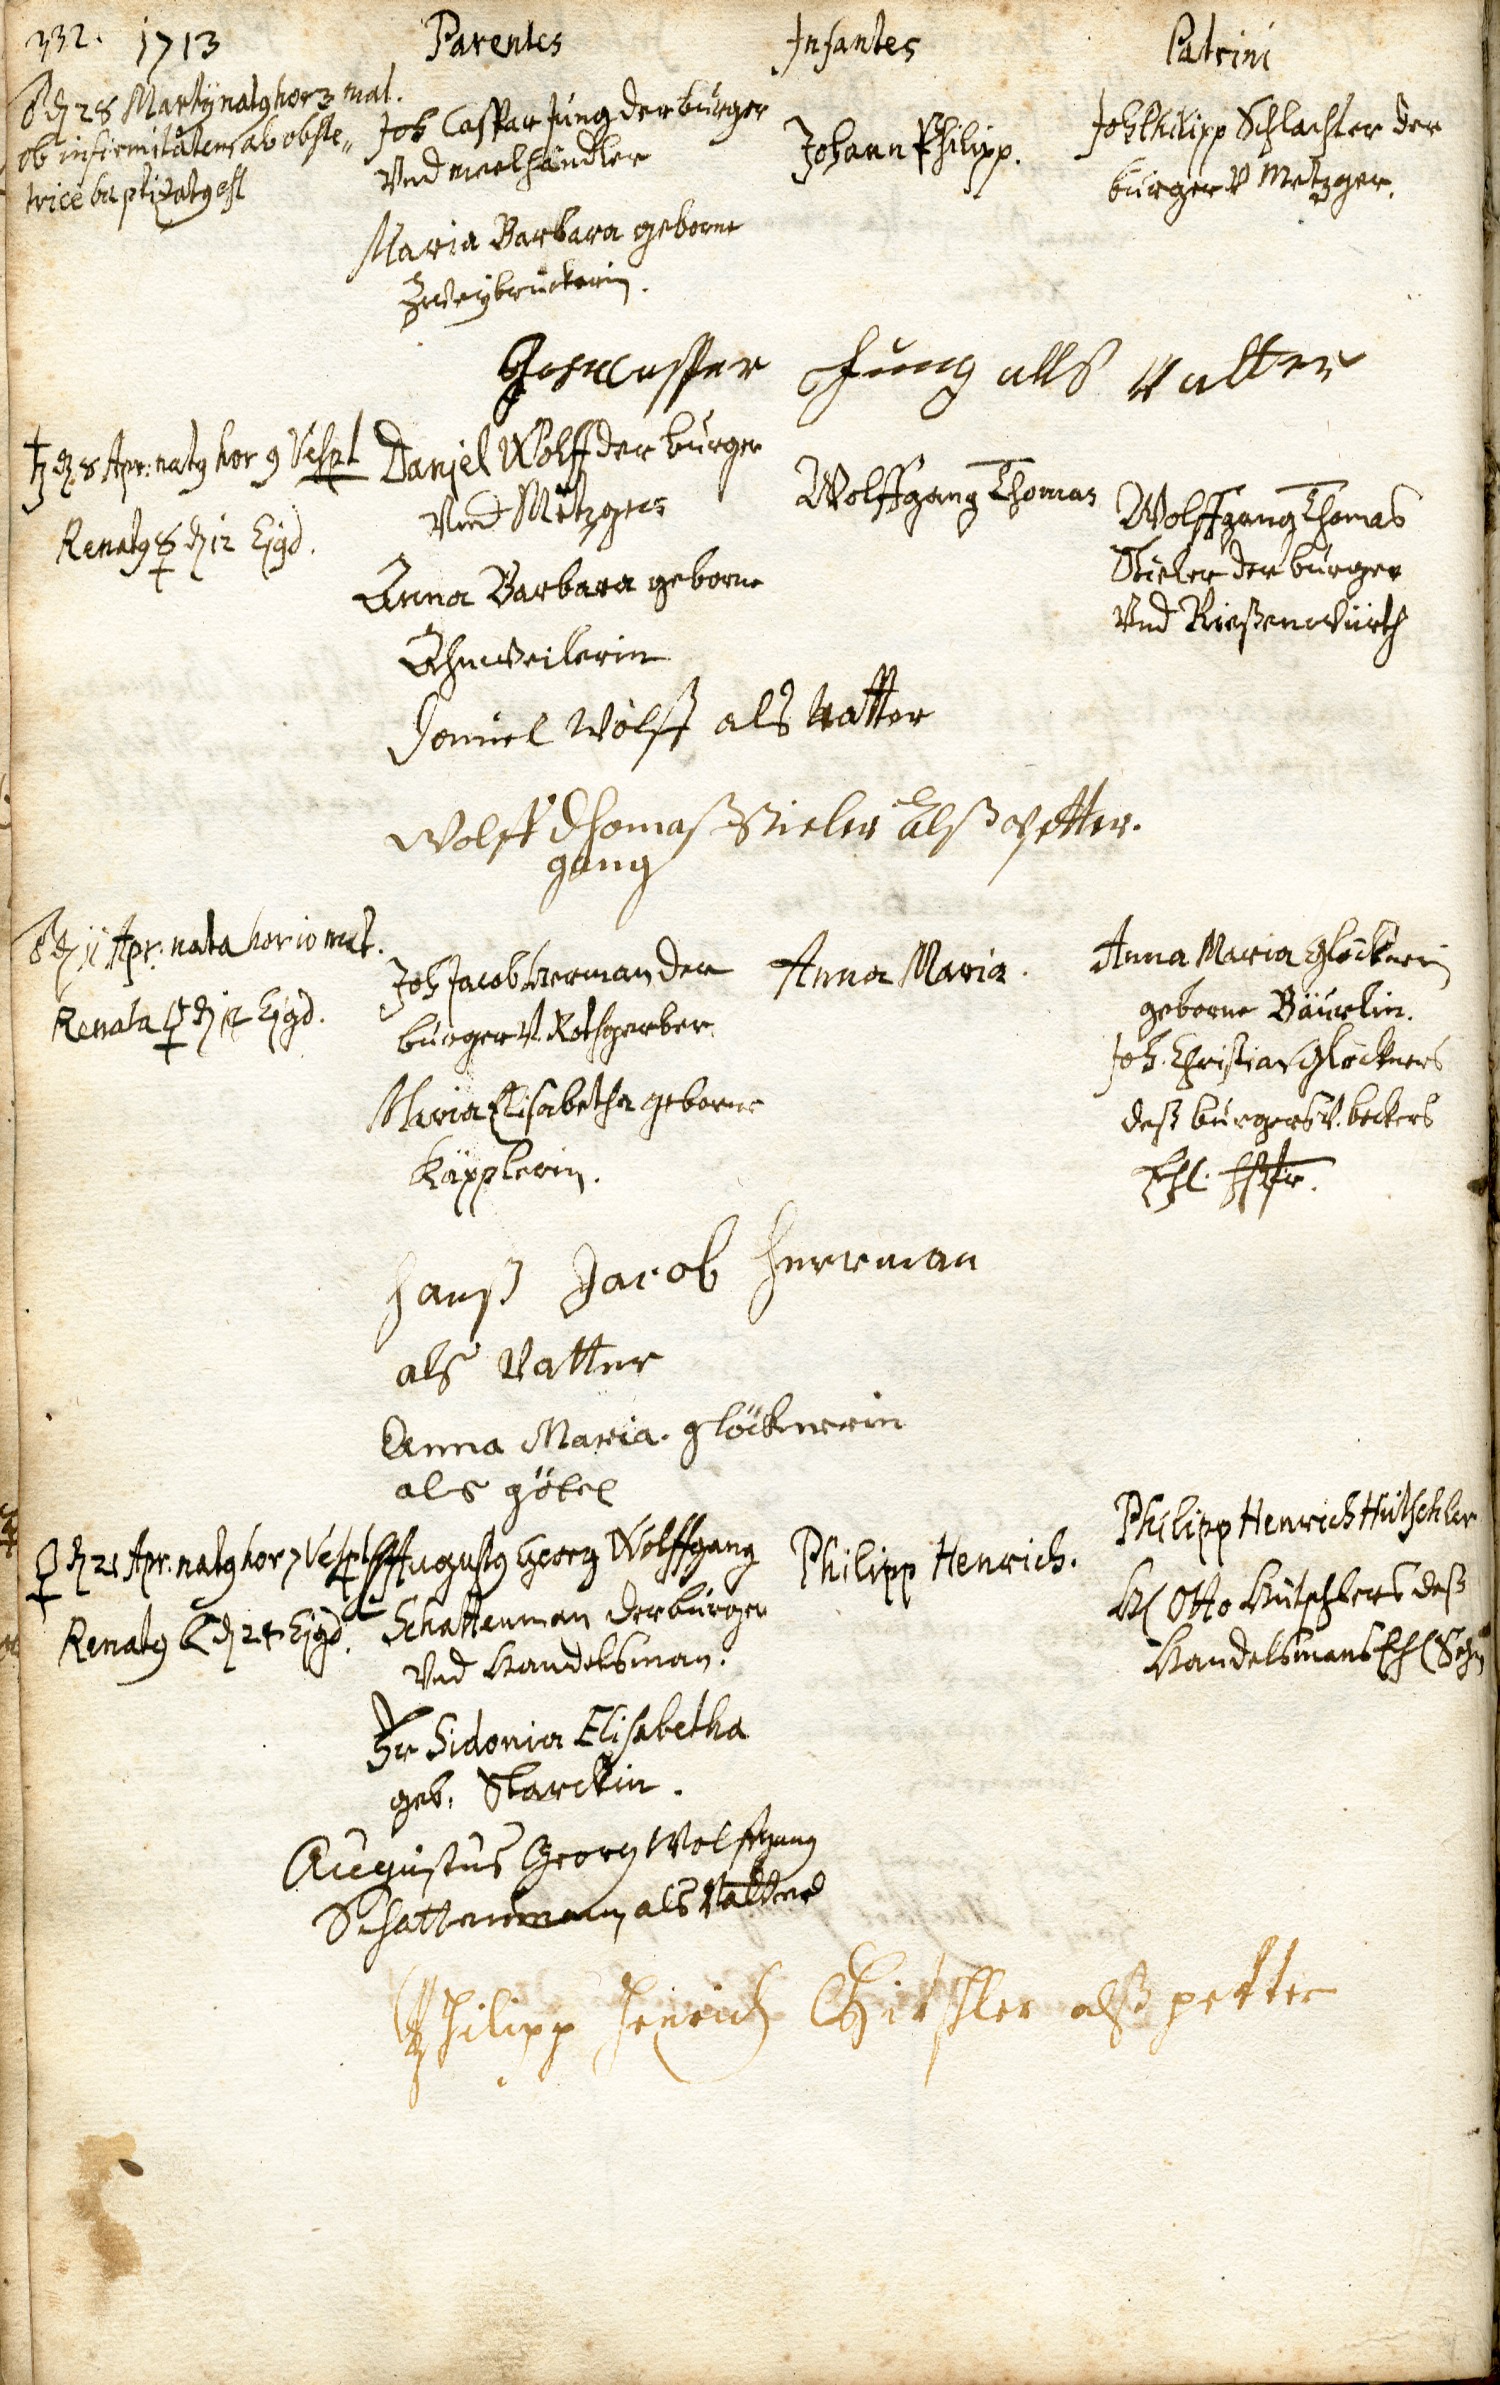 332. 1713 Parentes Infantes Patrini
♂ d 28 Martij natg hor 3 mat.
ob infirmitatem ab obste„
trice baptizatg est
Joh Caspar Jung der burger
Vnd meelhändler
Maria Barbara geborne
Zweybrückerin.
Johann Philipp.
Joh Philipp Schlachter der
burger V Metzger.
Johan Casper Jung alls Vatter
♄ d. 8 Apr: natg hor 9 Vesp
Renatg ☿ d 12 Ejgd.
Daniel Wolff der burger
Vnd Metzger
Anna Barbara geborne
Ahnweilerin
Wolffgang Thomas
Wolffgang Thomas
Stieler der burger
Vnd Rießenwürth
Daniel Wolff als Vatter
Wolff Thomaß Stieler alß Petter.
gang
♂ d 11 Apr: nata hor 10 mat.
Renata ☿ d 12 Ejgd.
Joh Jacob Herman der
burger V. Rothgerber
Maria Elisabetha geborne
Käpplerin.
Anna Maria.
Anna Maria Glöcknerin
geborne Bäuerlin.
Joh. Christian Glöckners
deß burgers V. beckers
Ehl. Hßfr.
Hanß Jacob Herrman
als Vatter
Anna Maria glöcknerin
als götel
♀ d 21 Apr. natg hor 7 Vesp
Renatg ☾ d 24 Ejgd.
Augustg Georg Wolffgang
Schattenman der burger
Vnd Handelsman.
Fr Sidonia Elisabetha
geb. Starckin.
Philipp Henrich.
Philipp Henrich Hütschler
H Otto Hütschlers deß
Handelsmans Ehl Sohn
Augustus Georg Wolffgang
Schattenmann als Vatter
Philipp Henrich Hitschler alß petter